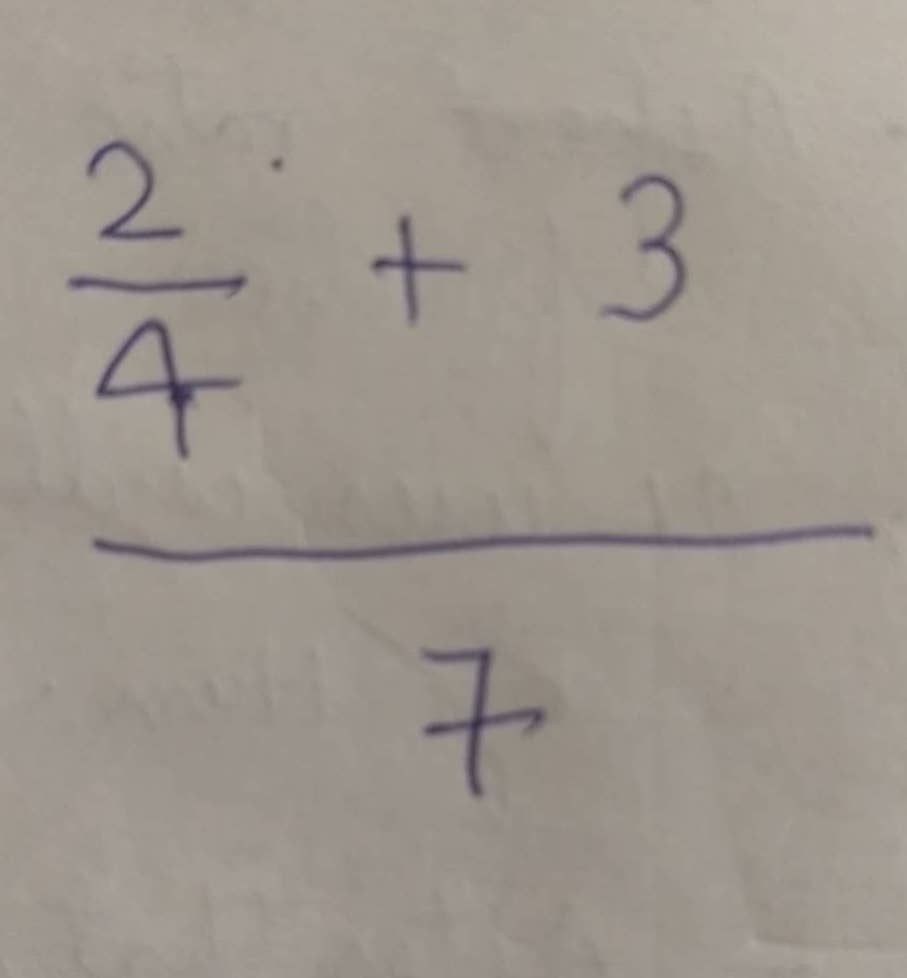 2/4 + 3
7